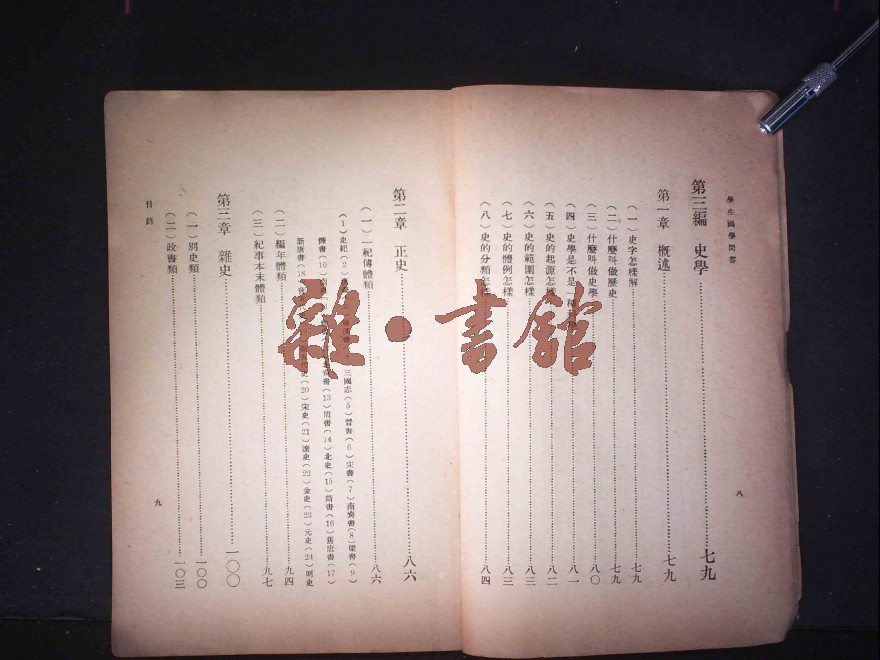 學生國學問答
第三編 史學……七九
第一章 概述……七九
(一)史字怎樣解……七九
(二)什麼叫做歷史……七九
(三)什麼叫做史學……八〇
(四)史學是不是一種……八一
(五)史的起源怎樣……八二
(六)史的範圍怎樣……八三
(七)史的體例怎樣……八三
(八)史的分類怎樣……八四
八
第二章 正史……八六
(一)紀傳體類……八六
(1)史記(2)三國志(5)晉書(6)宋書(7)南齊書(8)梁書(9)
陳書(10)書(13)周書(14)北史(15)隋書(16)舊唐書(17)
新唐書(18)史(20)宋史(21)遼史(22)金史(23)元史(24)明史
(二)編年體類……九四
(三)紀事本末體類……九七
第三章 雜史……一〇〇
(一)別史類……一〇〇
(二)政書類……一〇三
目錄
九
雜·書館